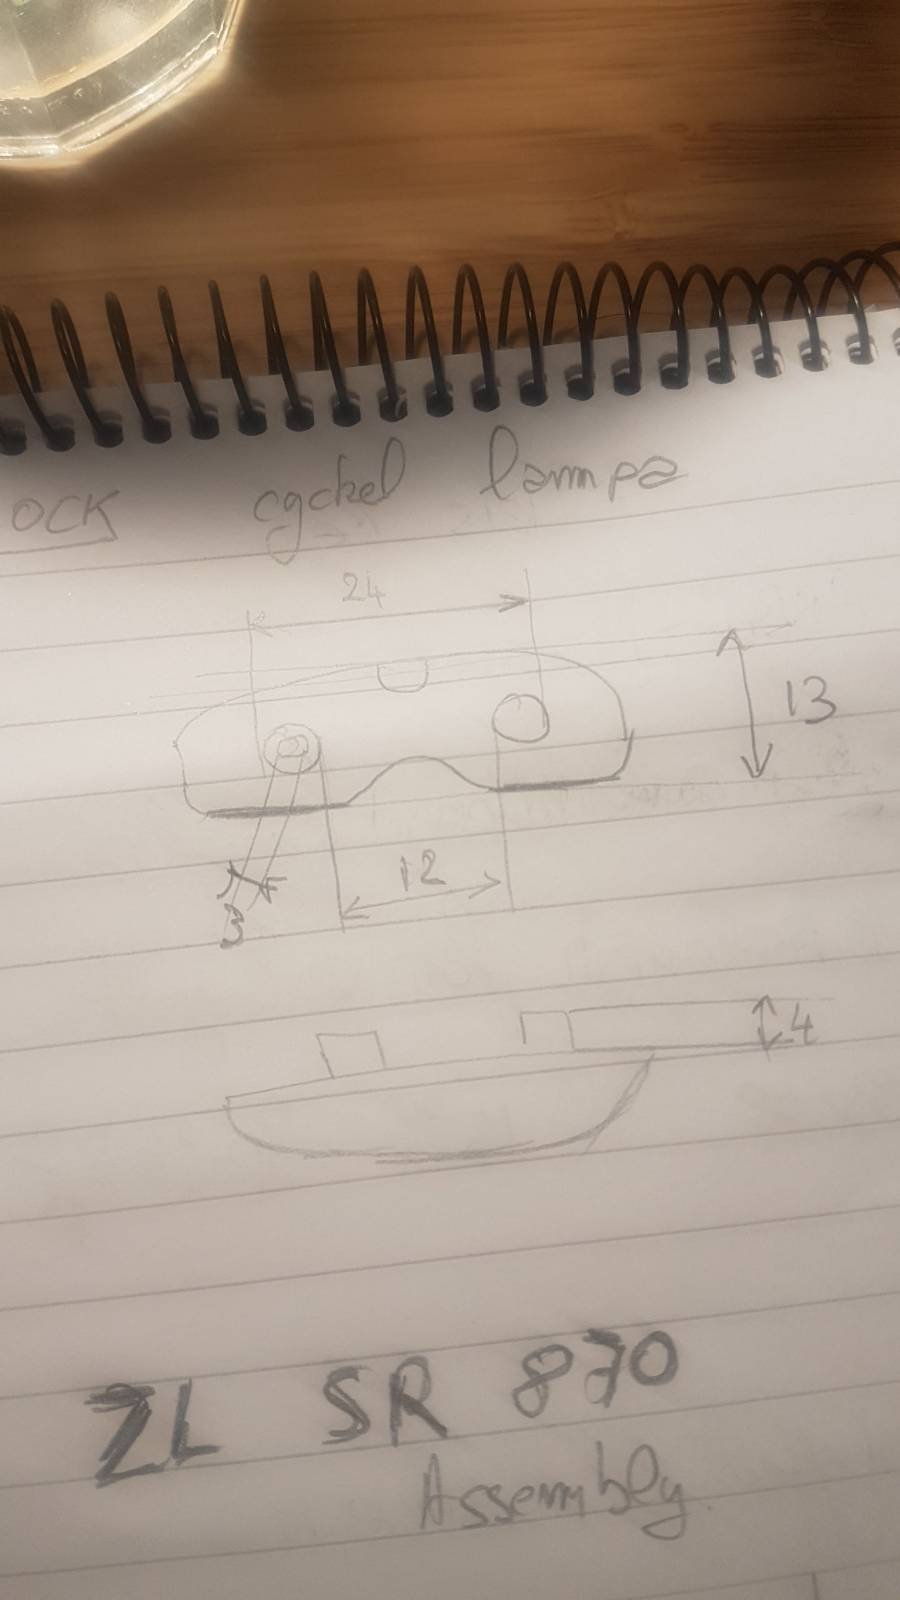 OCK cyckel lampa
24
13
12
3
4
ZL SR 870
Assembly